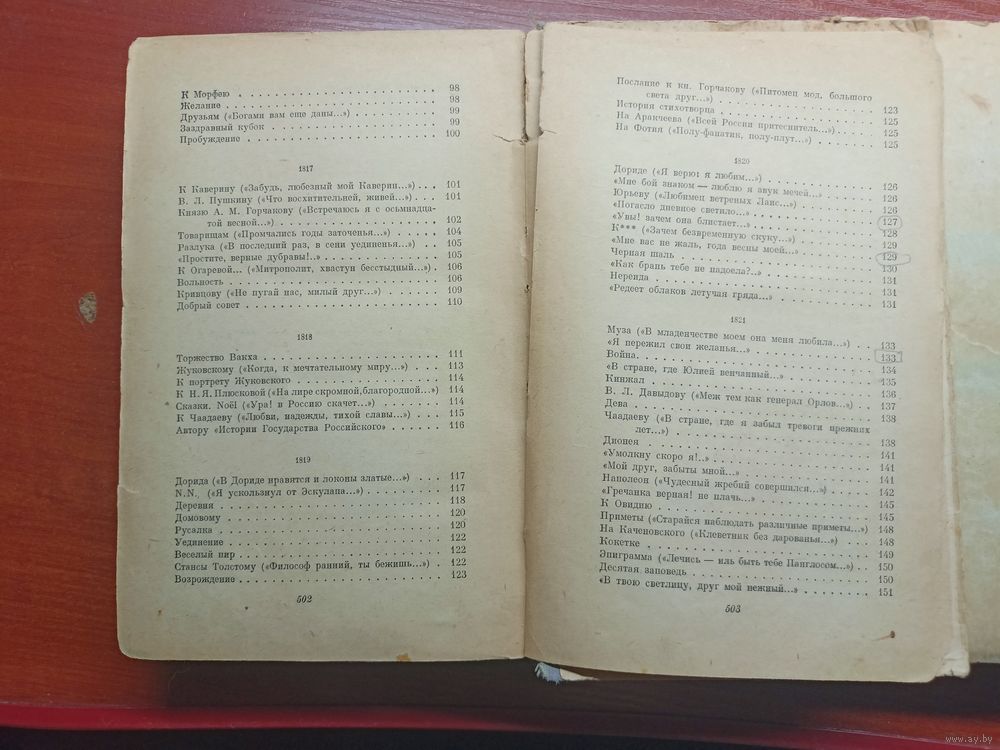 К Морфею . . . . . . . . . . . . . . . . . . 98
Желание . . . . . . . . . . . . . . . . . . 98
Друзьям («Богами вам еще даны...») . . . . . . 99
Заздравный кубок . . . . . . . . . . . . . . 99
Пробуждение . . . . . . . . . . . . . . . . 100
1817
К Каверину («Забудь, любезный мой Каверин...») . . . 101
В. Л. Пушкину («Что восхитительней, живей...») . . 101
Князю А. М. Горчакову («Встречаюсь я с осьмнадца-
той весной...») . . . . . . . . . . . . . . 102
Товарищам («Промчались годы заточенья...») . . . . 104
Разлука («В последний раз, в сени уединенья...») . . 105
«Простите, верные дубравы!..» . . . . . . . . . 105
К Огаревой... («Митрополит, хвастун бесстыдный...») . 106
Вольность . . . . . . . . . . . . . . . . . 106
Кривцову («Не пугай нас, милый друг...») . . . . . 109
Добрый совет . . . . . . . . . . . . . . . . 110
1818
Торжество Вакха . . . . . . . . . . . . . . 111
Жуковскому («Когда, к мечтательному миру...») . . . 113
К портрету Жуковского . . . . . . . . . . . . 114
К Н. Я. Плюсковой («На лире скромной, благородной...») 114
Сказки. Noël («Ура! в Россию скачет...») . . . . . 114
К Чаадаеву («Любви, надежды, тихой славы...») . . . 115
Автору «Истории Государства Российского» . . . . . 116
1819
Дорида («В Дориде нравятся и локоны златые...») . . . 117
N.N. («Я ускользнул от Эскулапа...») . . . . . . . 117
Деревня . . . . . . . . . . . . . . . . . . 118
Домовому . . . . . . . . . . . . . . . . . 120
Русалка . . . . . . . . . . . . . . . . . . 120
Уединение . . . . . . . . . . . . . . . . . 122
Веселый пир . . . . . . . . . . . . . . . . 122
Стансы Толстому («Философ ранний, ты бежишь...») . . 122
Возрождение . . . . . . . . . . . . . . . . 123
502
Послание к кн. Горчакову («Питомец мод, большого
света друг...») . . . . . . . . . . . . . . 123
История стихотворца . . . . . . . . . . . . . 125
На Аракчеева («Всей России притеснитель...») . . . . 125
На Фотия («Полу-фанатик, полу-плут...») . . . . . 125
1820
Дориде («Я верю: я любим...») . . . . . . . . . 126
«Мне бой знаком — люблю я звук мечей...» . . . . . 126
Юрьеву («Любимец ветреных Лаис...») . . . . . . 126
«Погасло дневное светило...» . . . . . . . . . . 127
«Увы! зачем она блистает...» . . . . . . . . . . 128
К*** («Зачем безвременную скуку...») . . . . . . 129
«Мне вас не жаль, года весны моей...» . . . . . . 129
Черная шаль . . . . . . . . . . . . . . . . 130
«Как брань тебе не надоела?..» . . . . . . . . . 131
Нереида . . . . . . . . . . . . . . . . . . 131
«Редеет облаков летучая гряда...» . . . . . . . . 131
1821
Муза («В младенчестве моем она меня любила...») . . 133
«Я пережил свои желанья...» . . . . . . . . . . 133
Война . . . . . . . . . . . . . . . . . . . 134
«В стране, где Юлией венчанный...» . . . . . . . 135
Кинжал . . . . . . . . . . . . . . . . . . 136
В. Л. Давыдову («Меж тем как генерал Орлов...») . . 137
Дева . . . . . . . . . . . . . . . . . . . 138
Чаадаеву («В стране, где я забыл тревоги прежних
лет...») . . . . . . . . . . . . . . . . . 138
Дионея . . . . . . . . . . . . . . . . . . 141
«Умолкну скоро я!..» . . . . . . . . . . . . . 141
«Мой друг, забыты мной...» . . . . . . . . . . . 141
Наполеон («Чудесный жребий совершился...») . . . . 142
«Гречанка верная! не плачь...» . . . . . . . . . 145
К Овидию . . . . . . . . . . . . . . . . . 145
Приметы («Старайся наблюдать различные приметы...») 148
На Каченовского («Клеветник без дарованья...») . . . 148
Кокетке . . . . . . . . . . . . . . . . . . 149
Эпиграмма («Лечись — иль быть тебе Панглосом...») . . 150
Десятая заповедь . . . . . . . . . . . . . . 150
«В твою светлицу, друг мой нежный...» . . . . . . 151
503
www.ay.by